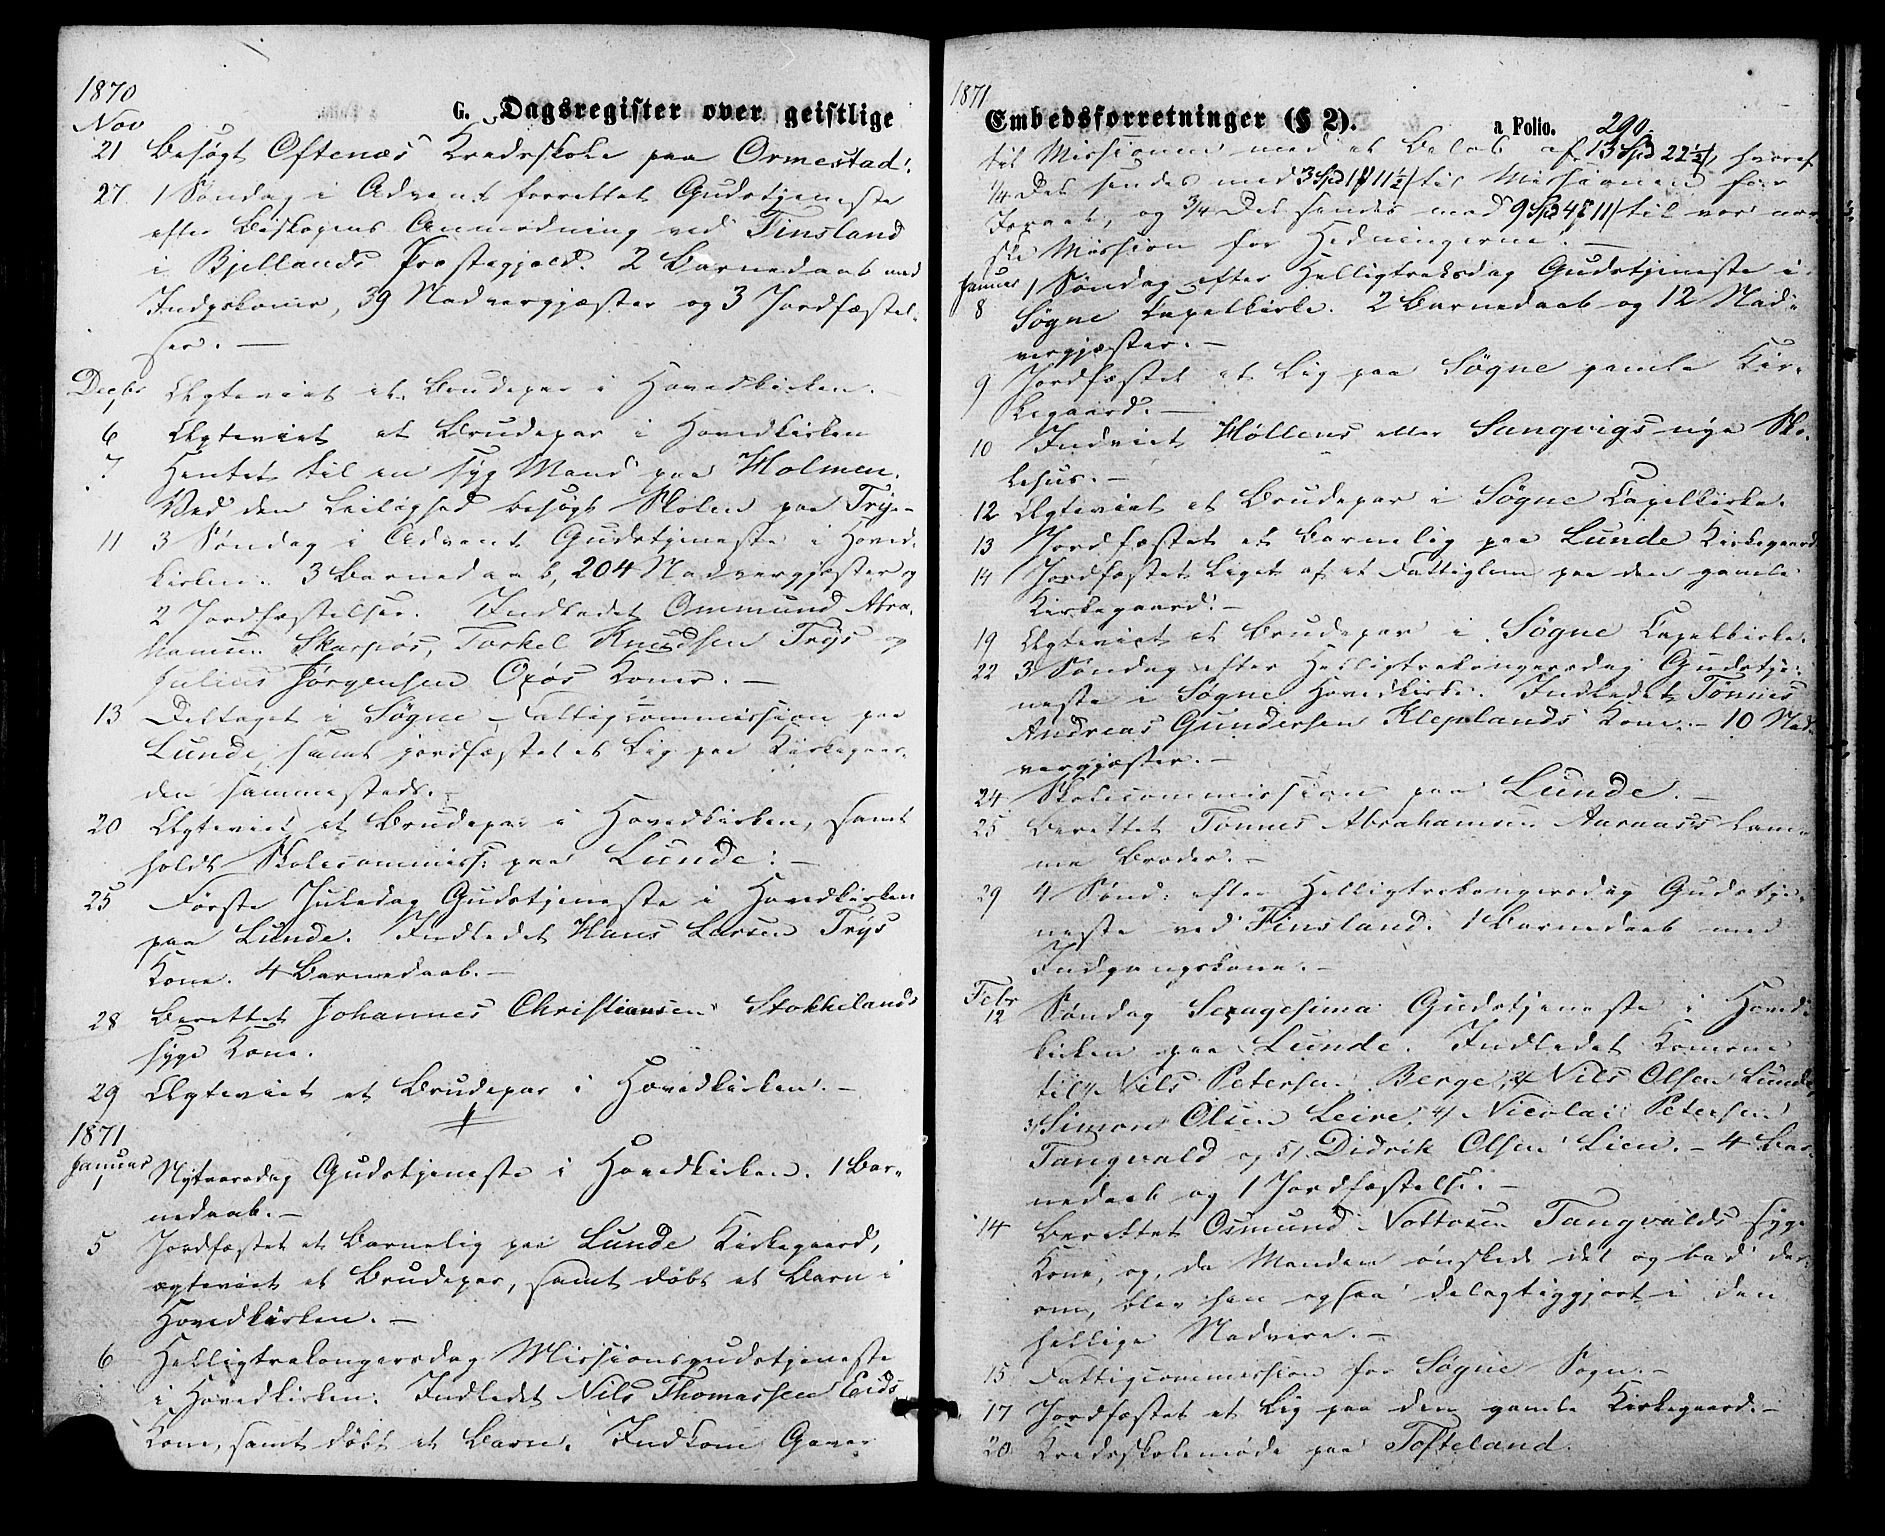 1870
G. Dagsregister over geistlige
Nov
21 Besøgt Oftenæs Kredsskole paa Ormestad.
27. 1 Søndag i Advent forrettet Gudstjeneste
efter Biskopens Anmodning ved Finsland
i Bjellands Præstegjeld. 2 Barnedaab med
Indgskoner, 39 Nadvergjæster og 3 Jordfæstel-
ser. —
Decbr
1 Ægteviet et Brudepar i Hovedkirken. —
6 Ægteviet et Brudepar i Hovedkirken
7 Hentet til en syg Mand paa Holmen.
Ved den Leilighed besøgt Skolen paa Trys-
11 3 Søndag i Advent Gudstjeneste i Hoved-
kirken. 3 Barnedaab, 204 Nadvergjæster og
2 Jordfæstelser. Indledet Ommund Abra-
hamsen Skarpøs, Torkel Knudsen Trys og
Julius Jørgensen Oxøs Koner. —
13 Deltaget i Søgne Fattigcommission paa
Lunde, samt jordfæstet et Lig paa Kirkegaar-
den sammesteds. —
20 Ægteviet et Brudepar i Hovedkirken, samt
holdt Skolecommiss: paa Lunde. —
25 Første Juledag Gudstjeneste i Hovedkirken
paa Lunde. Indledet Hans Larsen Trys
Kone. 4 Barnedaab. —
28 Berettet Johannes Christiansen Stokkelands
syge Kone.
29 Ægteviet et Brudepar i Hovedkirken. —
1871
Januar
1 Nytaarsdag Gudstjeneste i Hovedkirken. 1 Bar-
nedaab. —
5 Jordfæstet et Barnelig paa Lunde Kirkegaard,
ægteviet et Brudepar, samt døbt et Barn i
Hovedkirken. —
6 Helligtrekongersdag Missionsgudstjeneste
i Hovedkirken. Indledet Nils Thomassen Eids
Kone, samt døbt et Barn. Indkom Gaver
1871
Embedsforretninger (§ 2). a Folio. 290.
til Missionen med et Beløb af 13 Spd 22½ß, hvoraf
¼ Del sendes med 3 Spd 1 11½ß til Missionen for
og ¾ Del sendes med 9 Spd 4 11ß til vor nor-
ske Mission for Hedningerne. —
Januar
8 1 Søndag efter Helligtrekgsdag Gudstjeneste i
Søgne Capelkirke. 2 Barnedaab og 12 Nad-
vergjæster. —
9 Jordfæstet et Lig paa Søgne gamle Kir-
kegaard. —
10 Indviet Høllens eller Sangvigs nye Sko-
lehus. —
12 Ægteviet et Brudepar i Søgne Capelkirke.
13 Jordfæstet et Barnelig paa Lunde Kirkegaard
14 Jordfæstet Liget af et Fattiglem paa den gamle
Kirkegaard. —
19 Ægteviet et Brudepar i Søgne Capelkirke.
22 3 Søndag efter Helligtrekongersdag Gudstje-
neste i Søgne Hovedkirke. Indledet Tønnes
Andreas Gundersen Kleplands Kone. — 10 Nad-
vergjæster. —
24 Skolecommission paa Lunde. —
25 Berettet Tønnes Abrahamsen Aaraas's lam-
me Broder. —
29 4 Sønd: efter Helligtrekongersdag Gudstje-
neste ved Finsland. 1 Barnedaab med
Indgangskone. —
Febr
12 Søndag Sexagesima Gudstjeneste i Hoved-
kirken paa Lunde. Indledet Konerne
til 1/ Nils Petersen Berge, 2/ Nils Olsen Lunde,
3/ Simon Olsen Leire, 4/ Nicolai Petersen
Tangvald og 5/ Didrik Olsen Lien. — 4 Bar-
nedaab og 1 Jordfæstelse. —
14 Berettet Osmund Nottosen Tangvalds syge
Kone, og, da Manden ønskede det og bad der-
om, blev han ogsaa delagtiggjort i den
hellige Nadvere. —
15 Fattigcommission for Søgne Sogn. —
17 Jordfæstet et Lig paa den gamle Kirkegaard. —
20 Kredsskolemøde paa Tofteland.